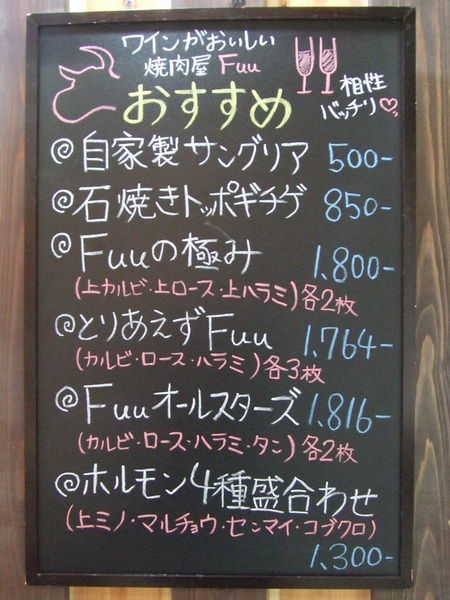 ワインがおいしい
焼肉屋 Fuu
おすすめ
相性
バッチリ♡
自家製サングリア 500-
石焼きトッポギチゲ 850-
Fuuの極み 1,800-
(上カルビ・上ロース・上ハラミ)各2枚
とりあえずFuu 1,764-
(カルビ・ロース・ハラミ)各3枚
Fuuオールスターズ 1,816-
(カルビ・ロース・ハラミ・タン)各2枚
ホルモン4種盛合わせ
(上ミノ・マルチョウ・センマイ・コブクロ)
1,300-